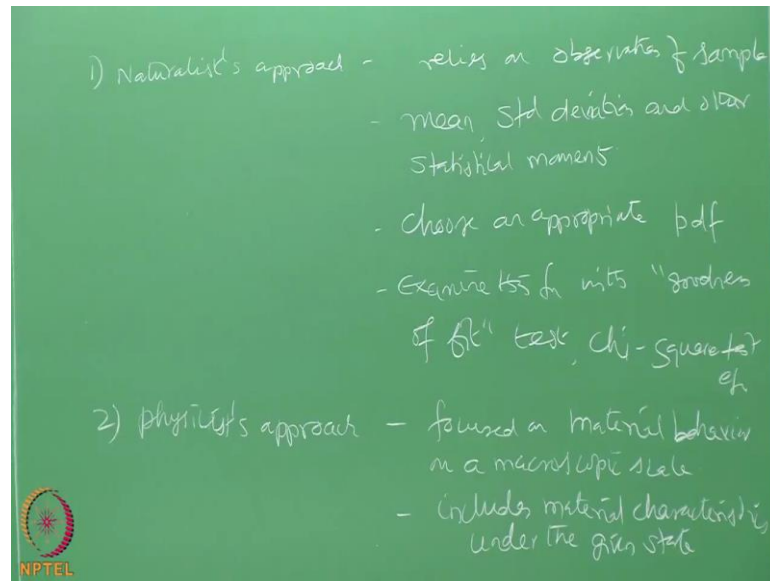 1) Naturalist's approach - relies on observation of sample
- mean, Std deviation and other
statistical moments
- choose an appropriate pdf
- Examine this fn with "goodness
of fit" test, chi-square test
etc
2) physicist's approach - focused on material behavior
on a macroscopic scale
- includes material characteristics
under the given state
NPTEL